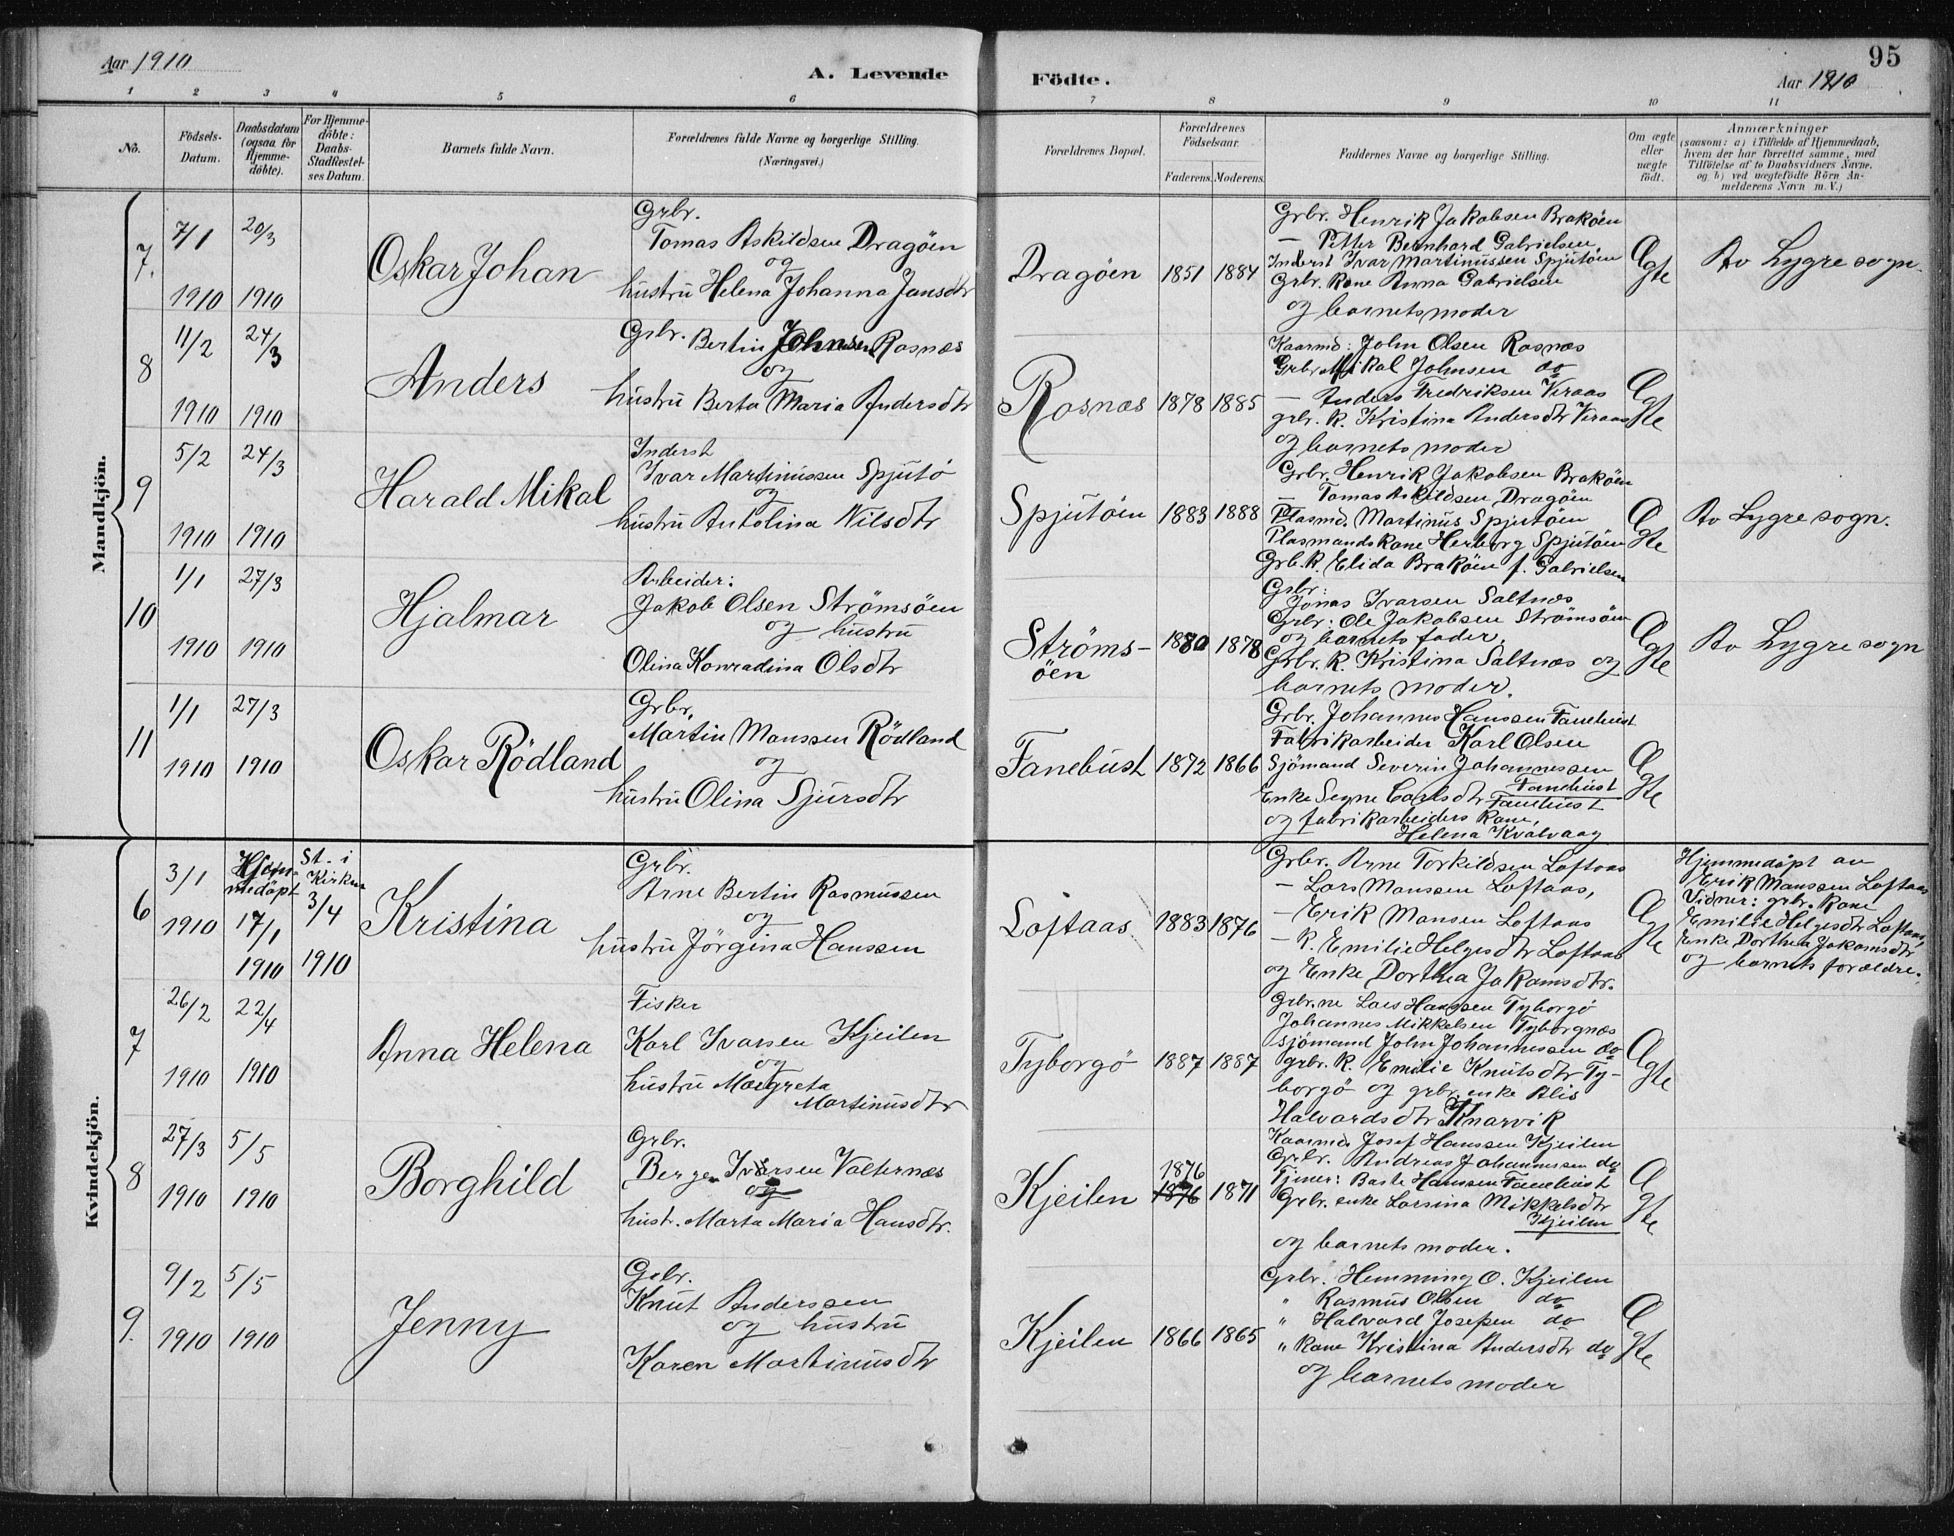 Aar 1910
A. Levende Födte.
95
Aar 1910
1 2 3 4 5 6 7 8 9 10 11
No.
Födsels-Datum.
Daabsdatum (ogsaa for Hjemme-döbte).
For Hjemme-döbte: Daabs-Stadfæstel-ses Datum.
Barnets fulde Navn.
Forældrenes fulde Navne og borgerlige Stilling. (Næringsvei.)
Forældrenes Bopæl.
Forældrenes Födselsaar.
Faderens. Moderens.
Faddernes Navne og borgerlige Stilling.
Om ægte eller uægte födt.
Anmærkninger
(saasom: a) i Tilfælde af Hjemmedaab, hvem der har forrettet samme, med Tilföielse af to Daabsvidners Navne, og b) ved uægtefödte Börn An-melderens Navn m. V.)
Mandkjön.
7.
7/1 1910
20/3 1910
Oskar Johan
Grbr.
Tomas Askildsen Dragöen
og
hustru Helena Johanna Jansdtr
Dragöen
1851 1884
Grbr. Henrik Jakobsen Braköen
— Petter Bernhard Gabrielsen,
Inderst Ivar Martinussen Spjutöen
Grbr. Kone Anna Gabrielsen
og barnets moder
Ægte
Av Lygre sogn.
8
11/2 1910
24/3 1910
Anders
Grbr. Bertin Johnsen Rosnæs
og
hustru Berta Maria Andersdtr
Rosnæs
1878 1885
Kaarmd: John Olsen Rosnæs
Grbr Mikal Johnsen do
— Anders Fredriksen Veraas
grbr. k. Kristina Andersdtr Veraas
og barnets moder
Ægte
9
5/2 1910
24/3 1910
Harald Mikal
Inderst
Ivar Martinussen Spjutö
og
hustru Antolina Nilsdtr
Spjutöen
1883 1888
Grbr. Henrik Jakobsen Braköen
— Tomas Askildsen Dragöen
Plasmd. Martinus Spjutöen
Plasmands kone Herborg Spjutöen
Grb. k. Elida Braköen f. Gabrielsen
Ægte
Av Lygre sogn.
10
1/1 1910
27/3 1910
Hjalmar
Arbeider:
Jakob Olsen Strömsöen
og hustru
Olina Konradina Olsdtr
Ströms-
öen
1880 1878
Grbr:
Jonas Ivarsen Saltnæs
Grbr: Ole Jakobsen Strömsöen
og barnets fader.
Grbr. k. Kristina Saltnæs og
barnets moder.
Ægte
Av Lygre sogn
11
1/1 1910
27/3 1910
Oskar Rödland
Grbr,
Martin Monssen Rödland
og
hustru Olina Sjursdtr
Fanebust
1872 1866
Grbr. Johannes Hanssen Fanebust
Fabrikarbeider Karl Olsen
Sjömand Severin Johannessen
Fanebust
Enke Segne Carlsdtr Fanebust
og fabrikarbeiders kone,
Helena Kvalvaag
Ægte
Kvindekjön.
6
3/1 1910
Hjem-
medöpt
17/1 1910
St. i
Kirken
3/4 1910
Kristina
Grbr.
Arne Bertin Rasmussen
og
hustru Jörgina Hanssen
Loftaas
1883 1876
Grbr. Arne Torkildsen Loftaas
— Lars Monssen Loftaas,
— Erik Monsen Loftaas
— k. Emilie Helgesdtr Loftaas
og Enke Dorthea Jakomsdtr.
Ægte
Hjemmedöpt av
Erik Monssen Loftaas
Vidner: grbr. kone
Emilie Helgesdtr Loftaas,
Enke Dorthea Jakomsdtr
og barnets forældre.
7
26/2 1910
22/4 1910
Anna Helena
Fisker
Karl Ivarsen Kjeilen
og
hustru Margreta
Martinusdtr
Tyborgö
1887 1887
Grbr.ne Lars Hanssen Tyborgö
Johannes Mikkelsen Tyborgnæs
sjömand John Johannessen do
grbr. k. Emilie Knutsdtr Ty-
borgö og grbr. enke Alis
Halvardsdtr Knarvik
Ægte
8
27/3 1910
5/5 1910
Borghild
Grbr.
Berge Ivarsen Valternæs
og
hustr. Marta Maria Hansdtr.
Kjeilen
1876
1876 1871
Kaarmd Josef Hanssen Kjeilen
Grbr. Andreas Johannessen do
Tjener: Baste Hanssen Fanebust
Grbr. enke Larsina Mikkelsdtr
Kjeilen
og barnets moder.
Ægte
9.
9/2 1910
5/5 1910
Jenny
Grbr.
Knut Anderssen
og hustru
Karen Martinusdtr
Kjeilen
1866 1865
Grbr. Hemming O. Kjeilen
" Rasmus Olsen do
" Halvard Josefsen do
" kone Kristina Andersdtr do
og barnets moder
Ægte